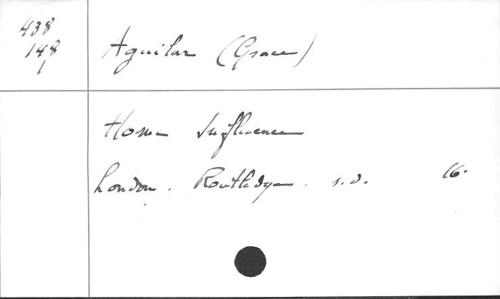 438
148
1
Aguilar (Grace)
Home Influence
London. Routledge. s.d. 16.